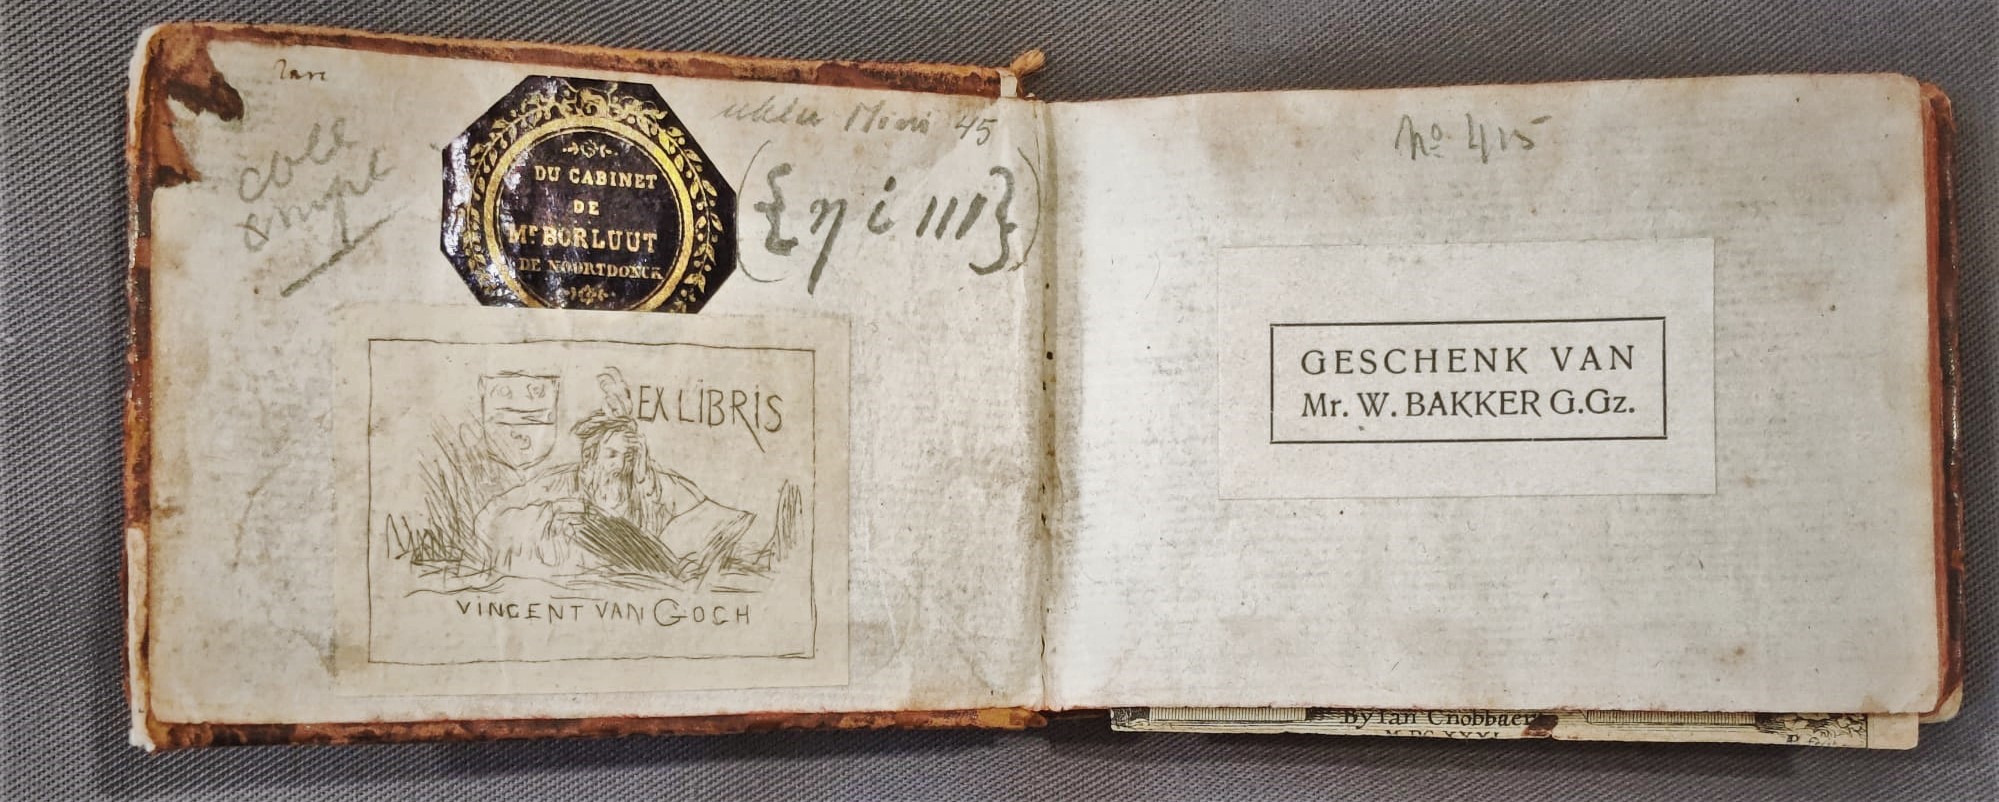 DU CABINET
DE
Mr BORLUUT
DE NOORTDONCK
45
{η i III}
EX LIBRIS
VINCENT VAN GOGH
No. 415
GESCHENK VAN
Mr. W. BAKKER G.Gz.
By Ian Cnobbaer
M.DC.XXXI.